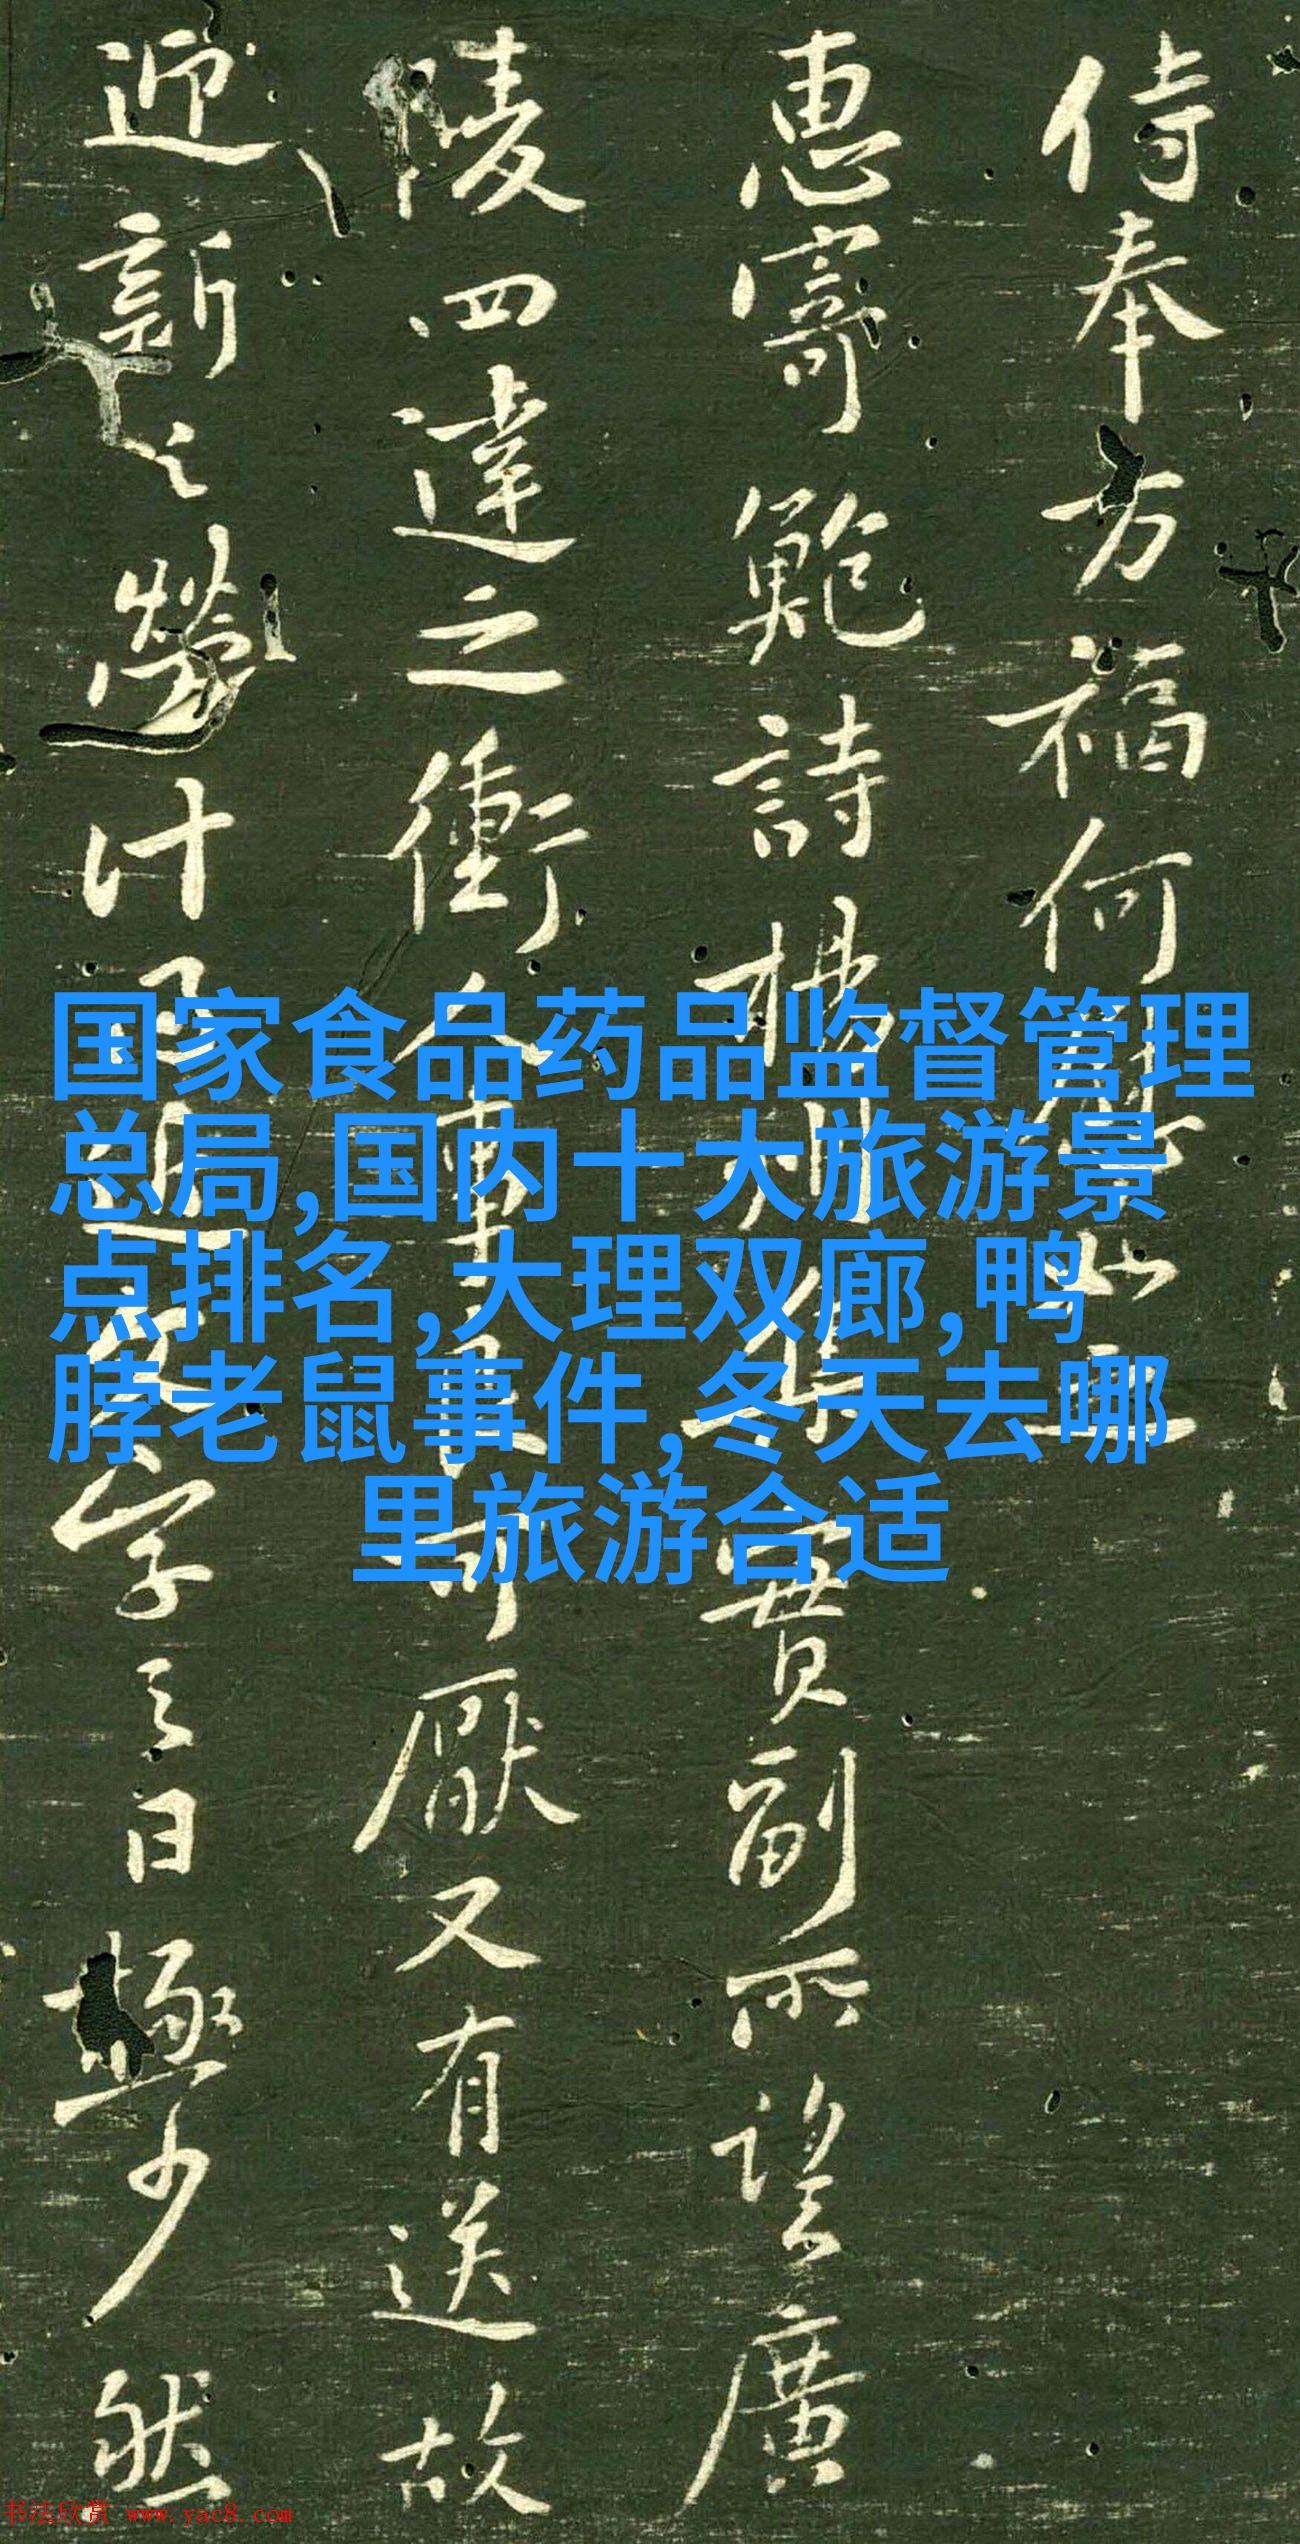 侍奉万福何
惠寄鲍詩楊州集實副所望廣
陵四達之衝人事良可厭又有送
迎新之勞計
字言日極少然
国家食品药品监督管理
总局,国内十大旅游景
点排名,大理双廊,鸭
脖老鼠事件,冬天去哪
里旅游合适
书法欣赏 www.yac8.com